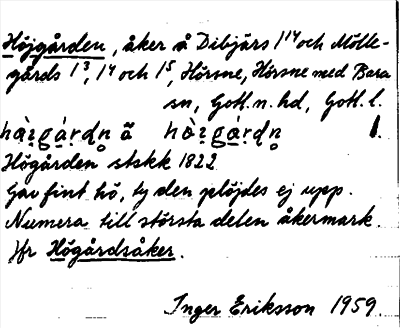 Höjgården, åker å Dibjärs 1¹⁴ och Mölle-
gårds 1³, 1⁴ och 1⁵, Hörsne, Hörsne med Bara
sn, Gotl. n. hd, Gotl. l.
Högården stskk 1822
Gav fint hö, ty den plöjdes ej upp.
Numera till största delen åkermark.
Jfr Högårdsåker.
Inger Eriksson 1959.